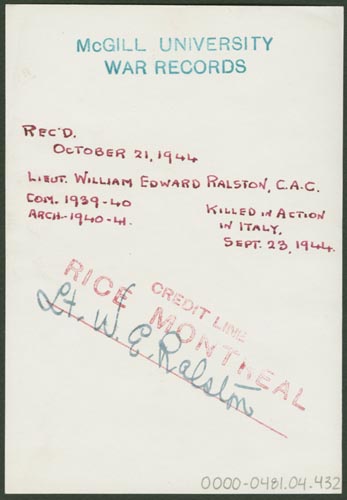 McGILL UNIVERSITY
WAR RECORDS
REC'D.
OCTOBER 21, 1944
LIEUT. WILLIAM EDWARD RALSTON, C.A.C.
COM. 1939-40
ARCH. 1940-41.
KILLED IN ACTION
IN ITALY,
SEPT. 23, 1944.
CREDIT LINE
RICE MONTREAL
Lt. W. E. Ralston
0000-0481.04.432